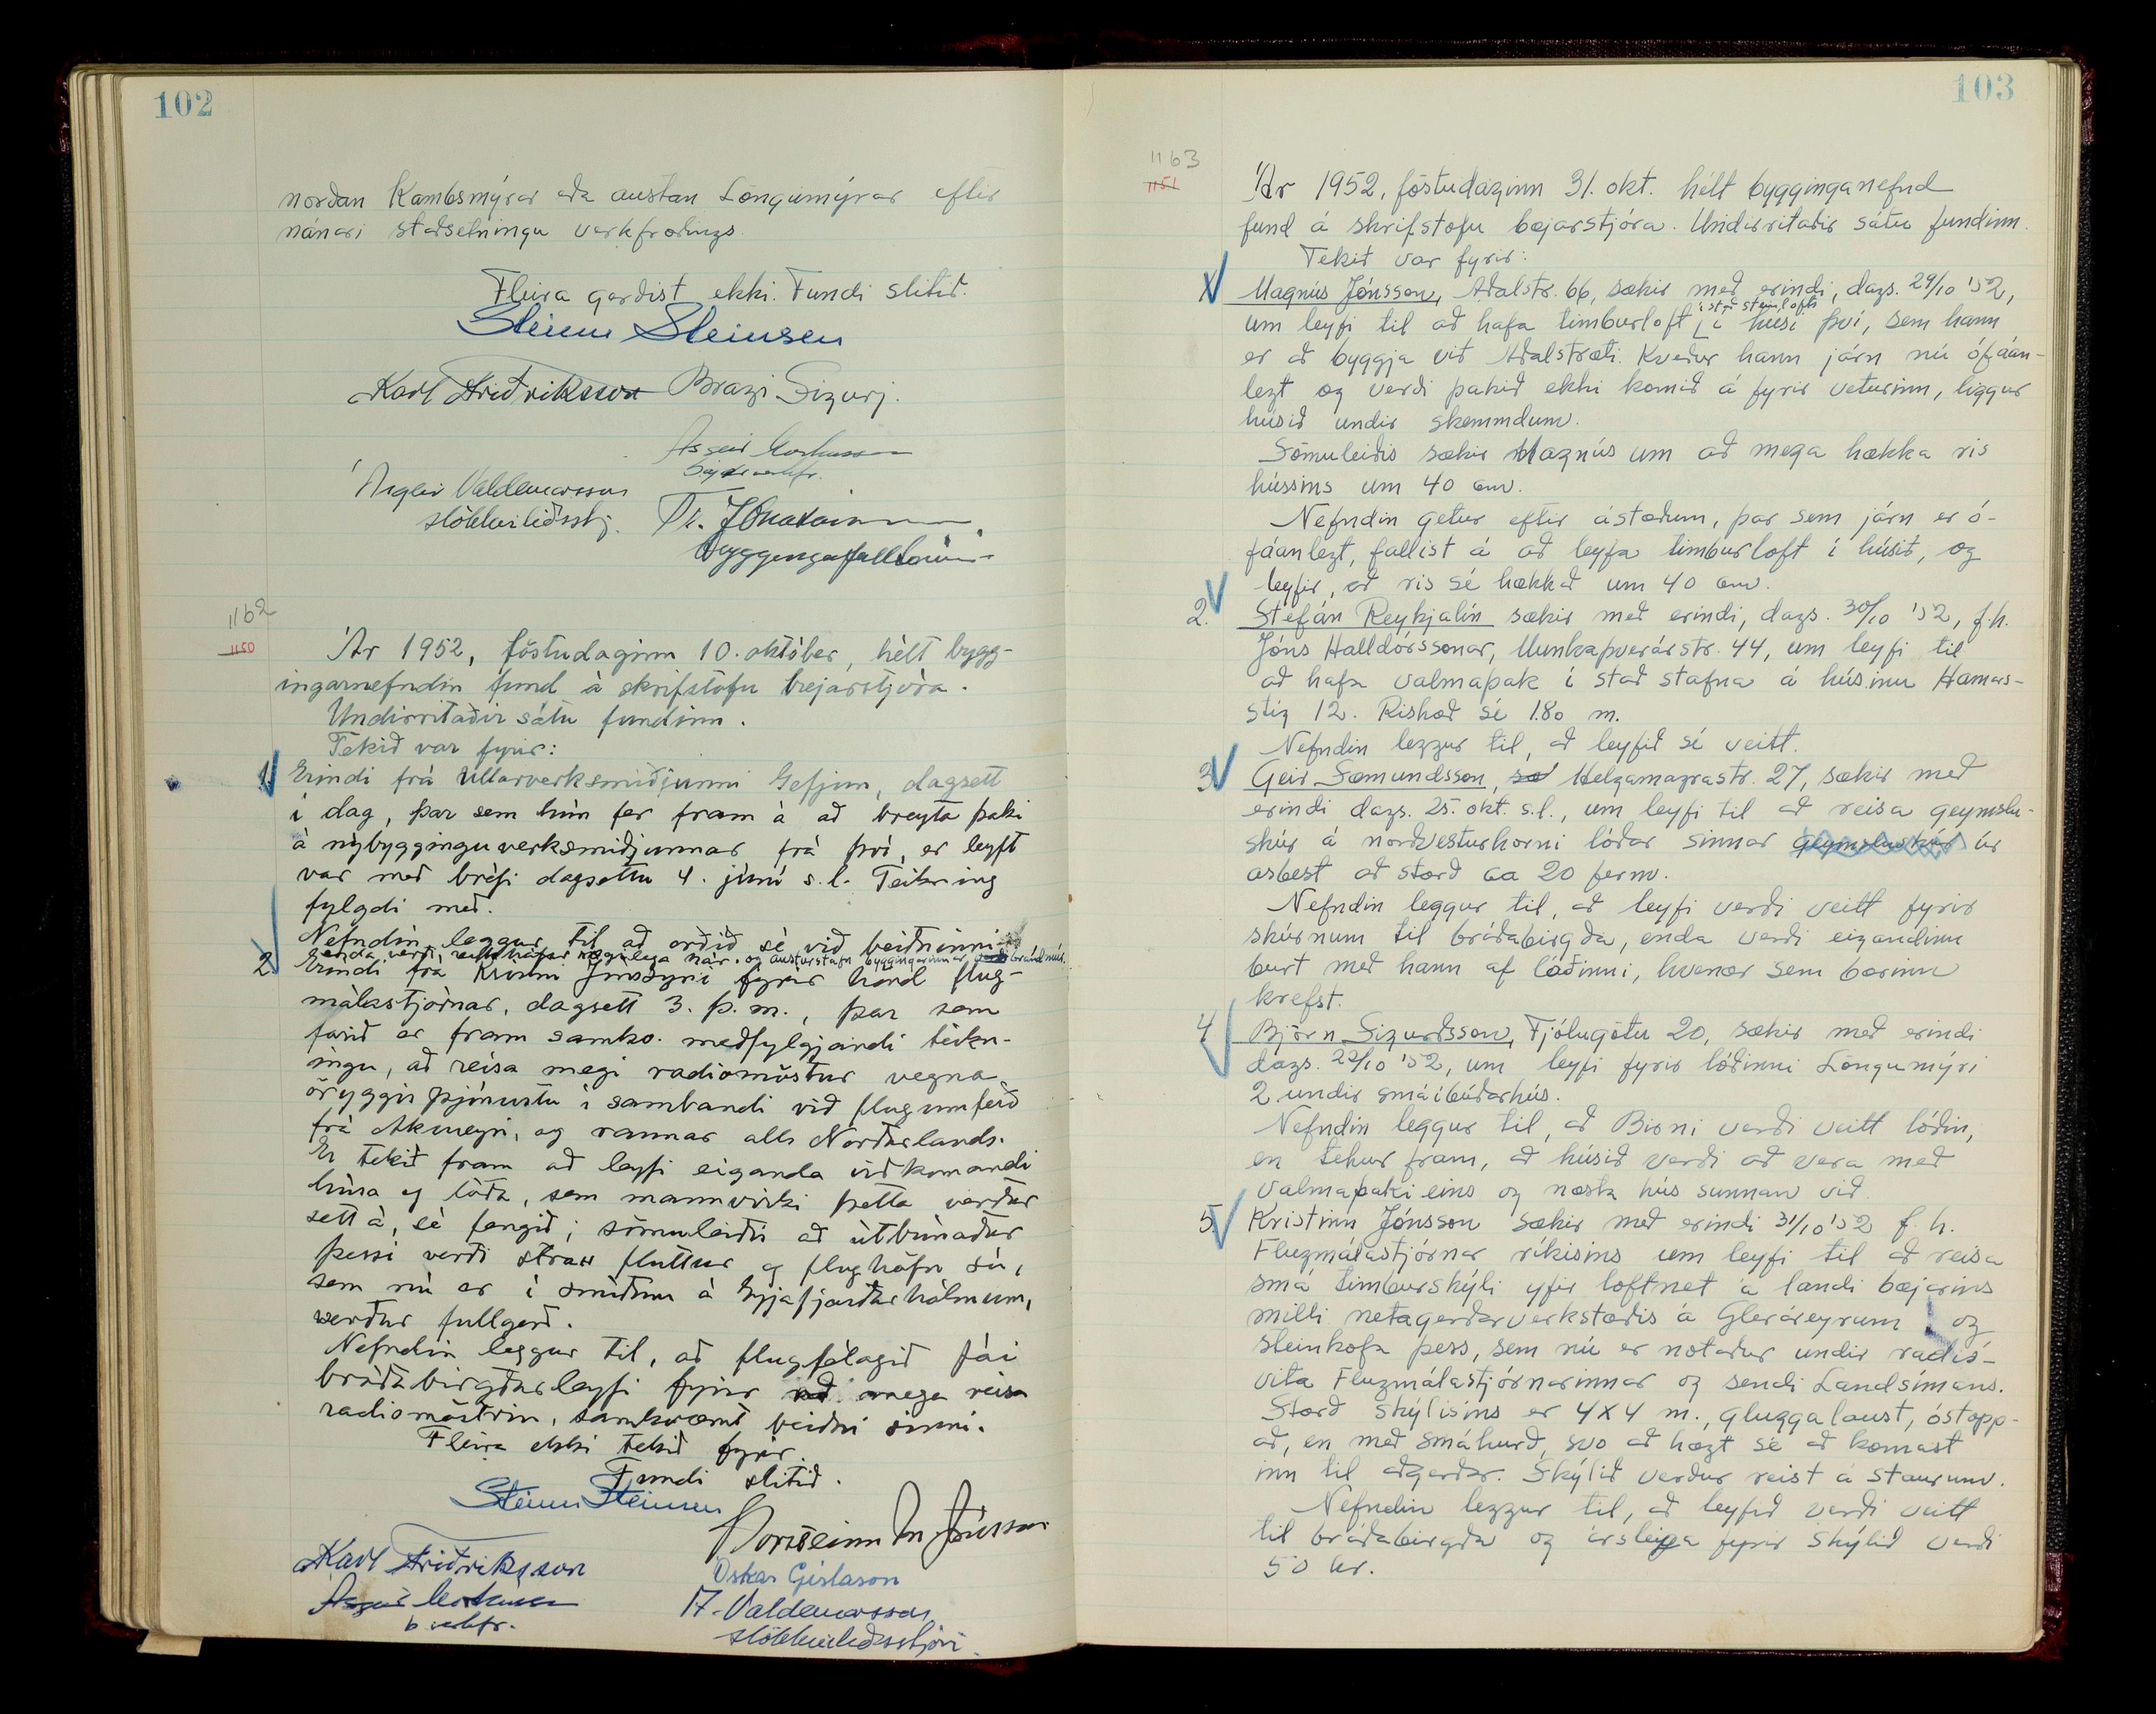 102
norðan Kambsmýrar eða austan Löngumýrar eftir
nánari staðsetningu verkfræðings.
Fleira gerðist ekki. Fundi slitið.
Steinn Steinsen
Karl Friðriksson Bragi Sigurj.
Ásgeir Markússon
bæjarverkfr.
Ásgeir Valdemarsson
slökkviliðsstj.
byggingafulltrúi
1162
1150
Ár 1952, föstudaginn 10. október, hélt bygg-
ingarnefndin fund á skrifstofu bæjarstjóra.
Undirritaðir sátu fundinn.
Tekið var fyrir:
1. Erindi frá Ullarverksmiðjunni Gefjun, dagsett
í dag, þar sem hún fer fram á að breyta þaki
á nýbyggingu verksmiðjunnar frá því, er leyft
var með bréfi dagsettu 4. júní s.l. Teikning
fylgdi með.
Nefndin leggur til að orðið sé við beiðninni
enda verði veggháfar nægilega háir og austurstafn byggingarinnar brandmúr.
2. Erindi frá Kristni Jónssyni fyrir hönd flug-
málastjórnar, dagsett 3. þ.m., þar sem
farið er fram samkv. meðfylgjandi teikn-
ingu, að reisa megi radiomöstur vegna
öryggisþjónustu í sambandi við flugumferð
frá Akureyri, og raunar alls Norðurlands.
Er tekið fram að leyfi eiganda viðkomandi
húsa og lóða, sem mannvirki þetta verður
sett á, sé fengið; sömuleiðis að útbúnaður
þessi verði strax fluttur og flughöfn sú,
sem nú er í smíðum á Eyjafjarðarhólmum,
verður fullgerð.
Nefndin leggur til, að flugfélagið fái
bráðabirgðarleyfi fyrir að mega reisa
radiomöstrin, samkvæmt beiðni sinni.
Fleira ekki tekið fyrir.
Fundi slitið.
Steinn Steinsen
Karl Friðriksson
Óskar Gíslason
b.verkfr.
Á. Valdemarsson
slökkviliðsstjóri
103
1163
1151
Ár 1952, föstudaginn 31. okt. hélt bygginganefnd
fund á skrifstofu bæjarstjóra. Undirritaðir sátu fundinn.
Tekið var fyrir:
Magnús Jónsson, Aðalstr. 66, sækir með erindi, dags. 29/10 '52,
um leyfi til að hafa timburloft í stað steinlofts í húsi því, sem hann
er að byggja við Aðalstræti. Kveður hann járn nú ófáan-
legt og verði þakið ekki komið á fyrir veturinn, liggur
húsið undir skemmdum.
Sömuleiðis sækir Magnús um að mega hækka ris
hússins um 40 cm.
Nefndin getur eftir ástæðum, þar sem járn er ó-
fáanlegt, fallist á að leyfa timburloft í húsið, og
leyfir, að ris sé hækkað um 40 cm.
2. Stefán Reykjalín sækir með erindi, dags. 30/10 '52, f.h.
Jóns Halldórssonar, Munkaþverárstr. 44, um leyfi til
að hafa valmaþak í stað stafna á húsinu Hamar-
stíg 12. Rishæð sé 1.80 m.
Nefndin leggur til, að leyfið sé veitt.
3. Geir Sæmundsson, sæ Helgamagrastr. 27, sækir með
erindi dags. 25. okt. s.l., um leyfi til að reisa geymslu-
skúr á norðvesturhorni lóðar sinnar geymsluskúr úr
asbest að stærð ca 20 ferm.
Nefndin leggur til, að leyfi verði veitt fyrir
skúrnum til bráðabirgða, enda verði eigandinn
burt með hann af lóðinni, hvenær sem bærinn
krefst.
4 Björn Sigurðsson, Fjólugötu 20, sækir með erindi
dags. 22/10 '52, um leyfi fyrir lóðinni Löngumýri
2 undir smáíbúðarhús.
Nefndin leggur til, að Birni verði veitt lóðin,
en tekur fram, að húsið verði að vera með
valmaþaki eins og næsta hús sunnan við.
5. Kristinn Jónsson sækir með erindi 31/10 '52 f.h.
Flugmálastjórnar ríkisins um leyfi til að reisa
smá timburskýli yfir loftnet á landi bæjarins
milli netagerðarverkstæðis á Gleráreyrum og
steinkofa þess, sem nú er notaður undir radió-
vita Flugmálastjórnarinnar og sendi Landsímans.
Stærð skýlisins er 4x4 m., gluggalaust, óstopp-
að, en með smáhurð, svo að hægt sé að komast
inn til aðgerðar. Skýlið verður reist á staurum.
Nefndin leggur til, að leyfið verði veitt
til bráðabirgða og ársleiga fyrir skýlið verði
50 kr.